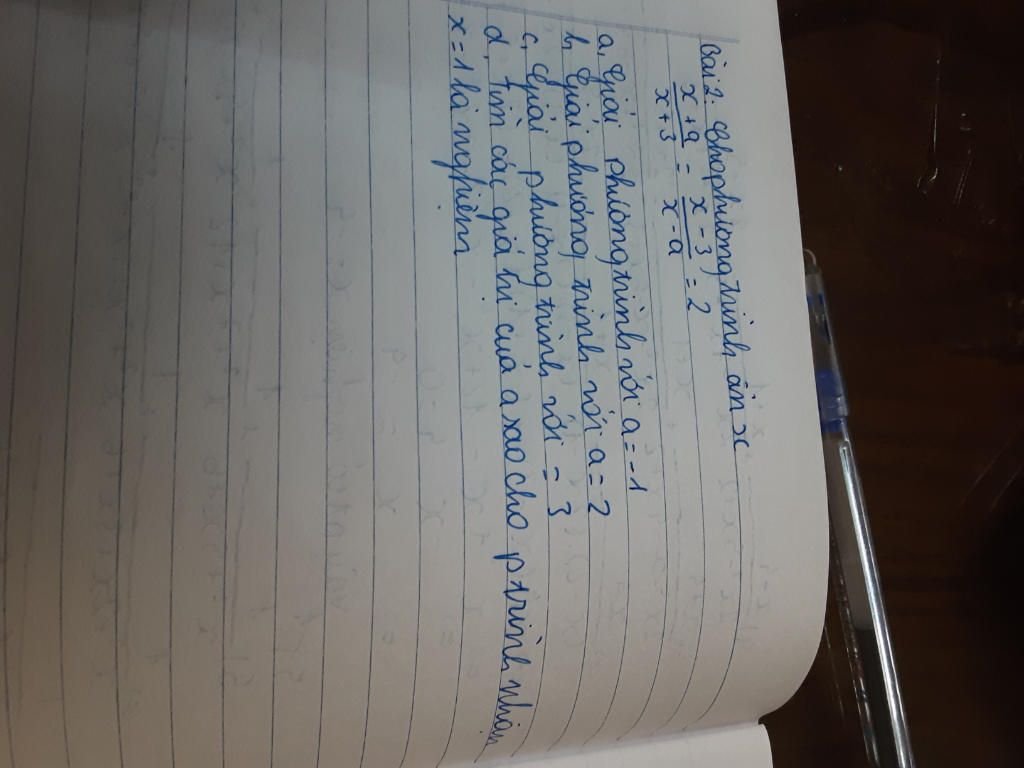 Bài 2: Cho phương trình ẩn x
x + a / x + 3 = x - 3 / x - a = 2
a, Giải phương trình với a = -1
b, Giải phương trình với a = 2
c, Giải phương trình với = 3
d, tìm các giá trị của a sao cho ptrình nhận
x = 1 là nghiệm